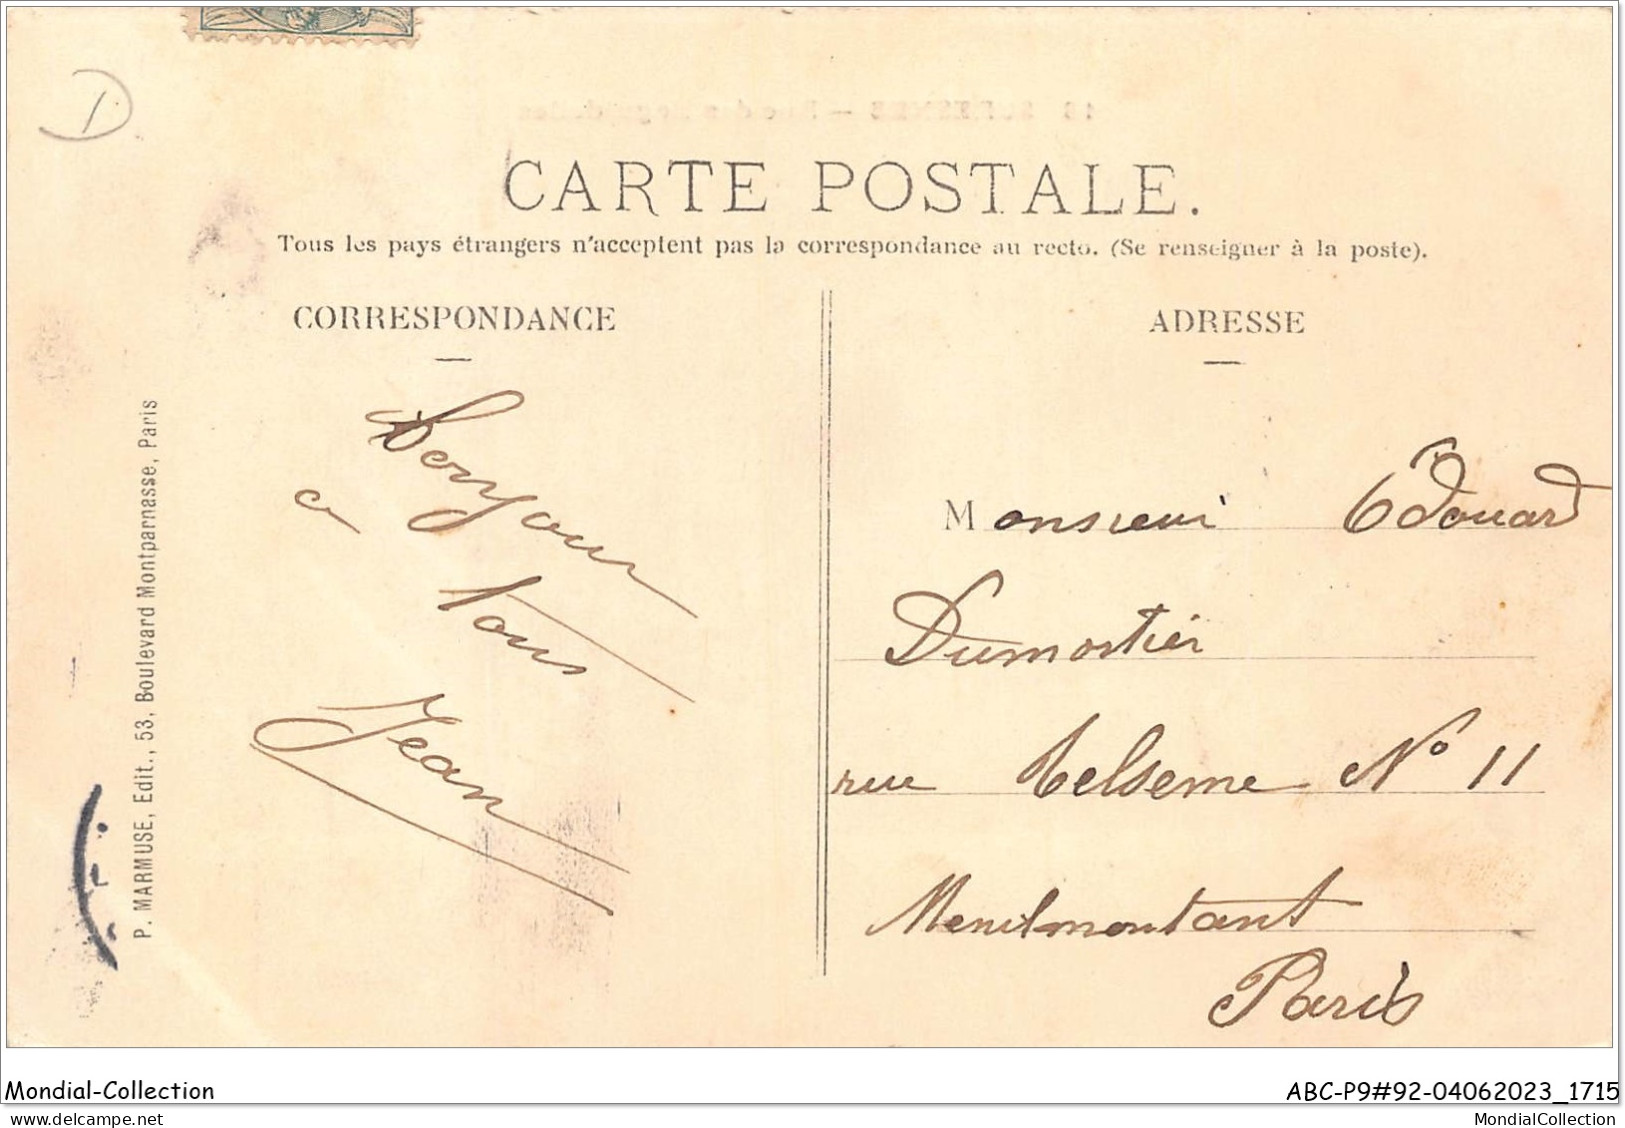 CARTE POSTALE.
Tous les pays étrangers n'acceptent pas la correspondance au recto. (Se renseigner à la poste).
CORRESPONDANCE
Bonjour
a tous
Jean
ADRESSE
Monsieur Edouard
Dumortier
rue Delseme N° 11
Menilmontant
Paris
P. MARMUSE, Edit., 53, Boulevard Montparnasse, Paris
Mondial-Collection
ABC-P9#92-04062023_1715
delcampe.net
MondialCollection